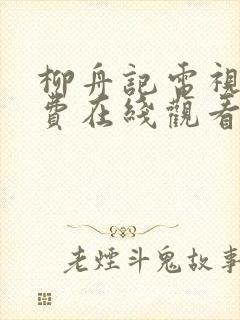 柳舟記電視
費在綫觀看
老煙斗鬼故事